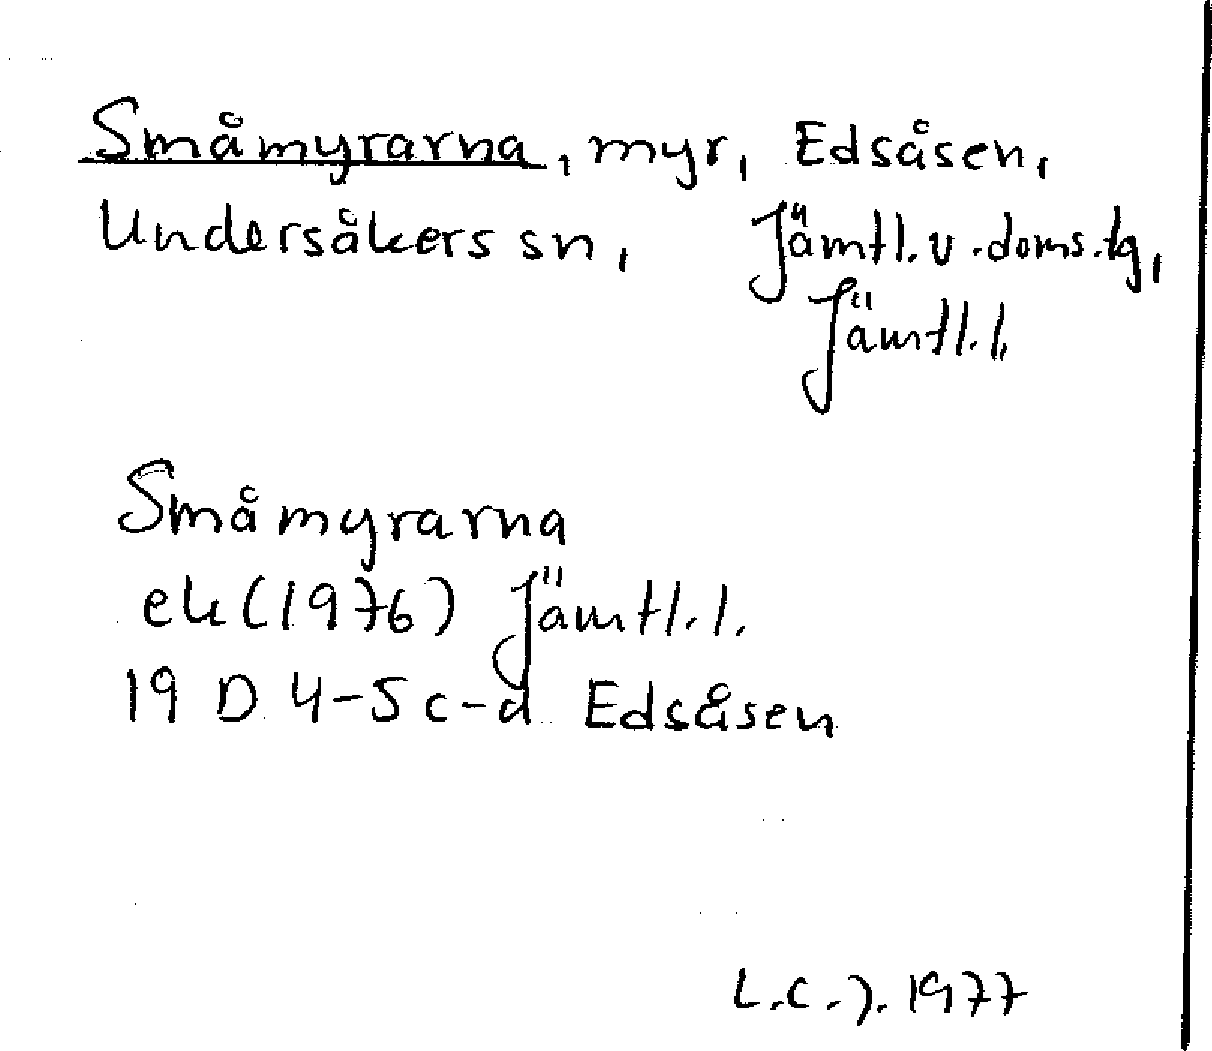 Småmyrarna, myr, Edsåsen,
Undersåkers sn, Jämtl.v.doms.tg,
Jämtl.l.
Småmyrarna
ek(1976) Jämtl.l.
19 D 4-5 c-d Edsåsen
L.C.J. 1977